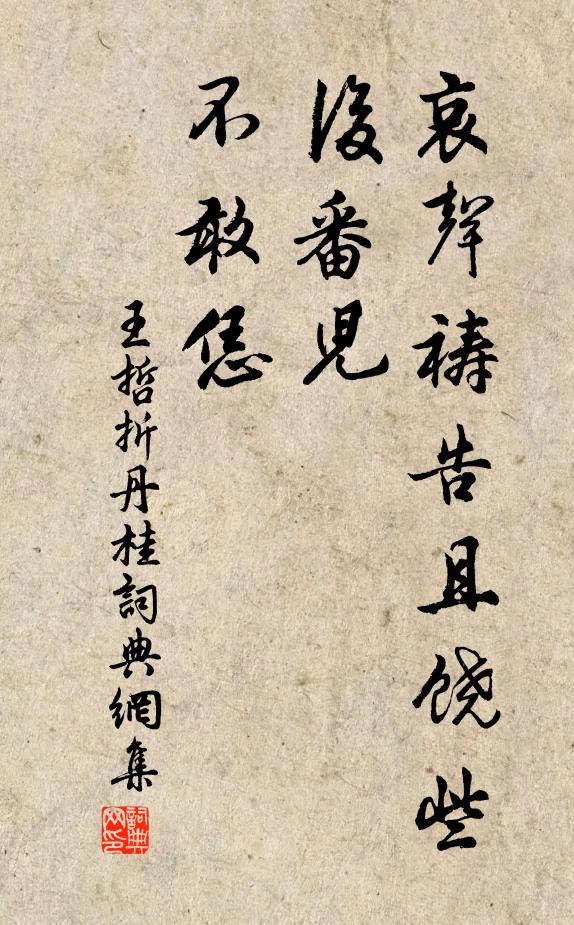 哀聲祷告且饶些
後番兒
不敢恁
王哲折丹桂詞典網集
詞典網印